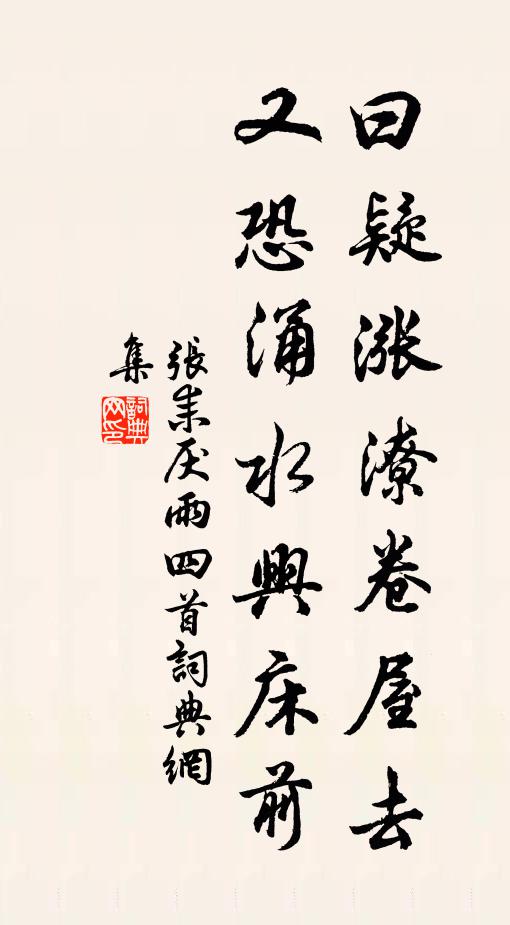 曰疑漲潦卷屋去
又恐涌水興床前
張耒厌雨四首詞典網
集
詞典網印